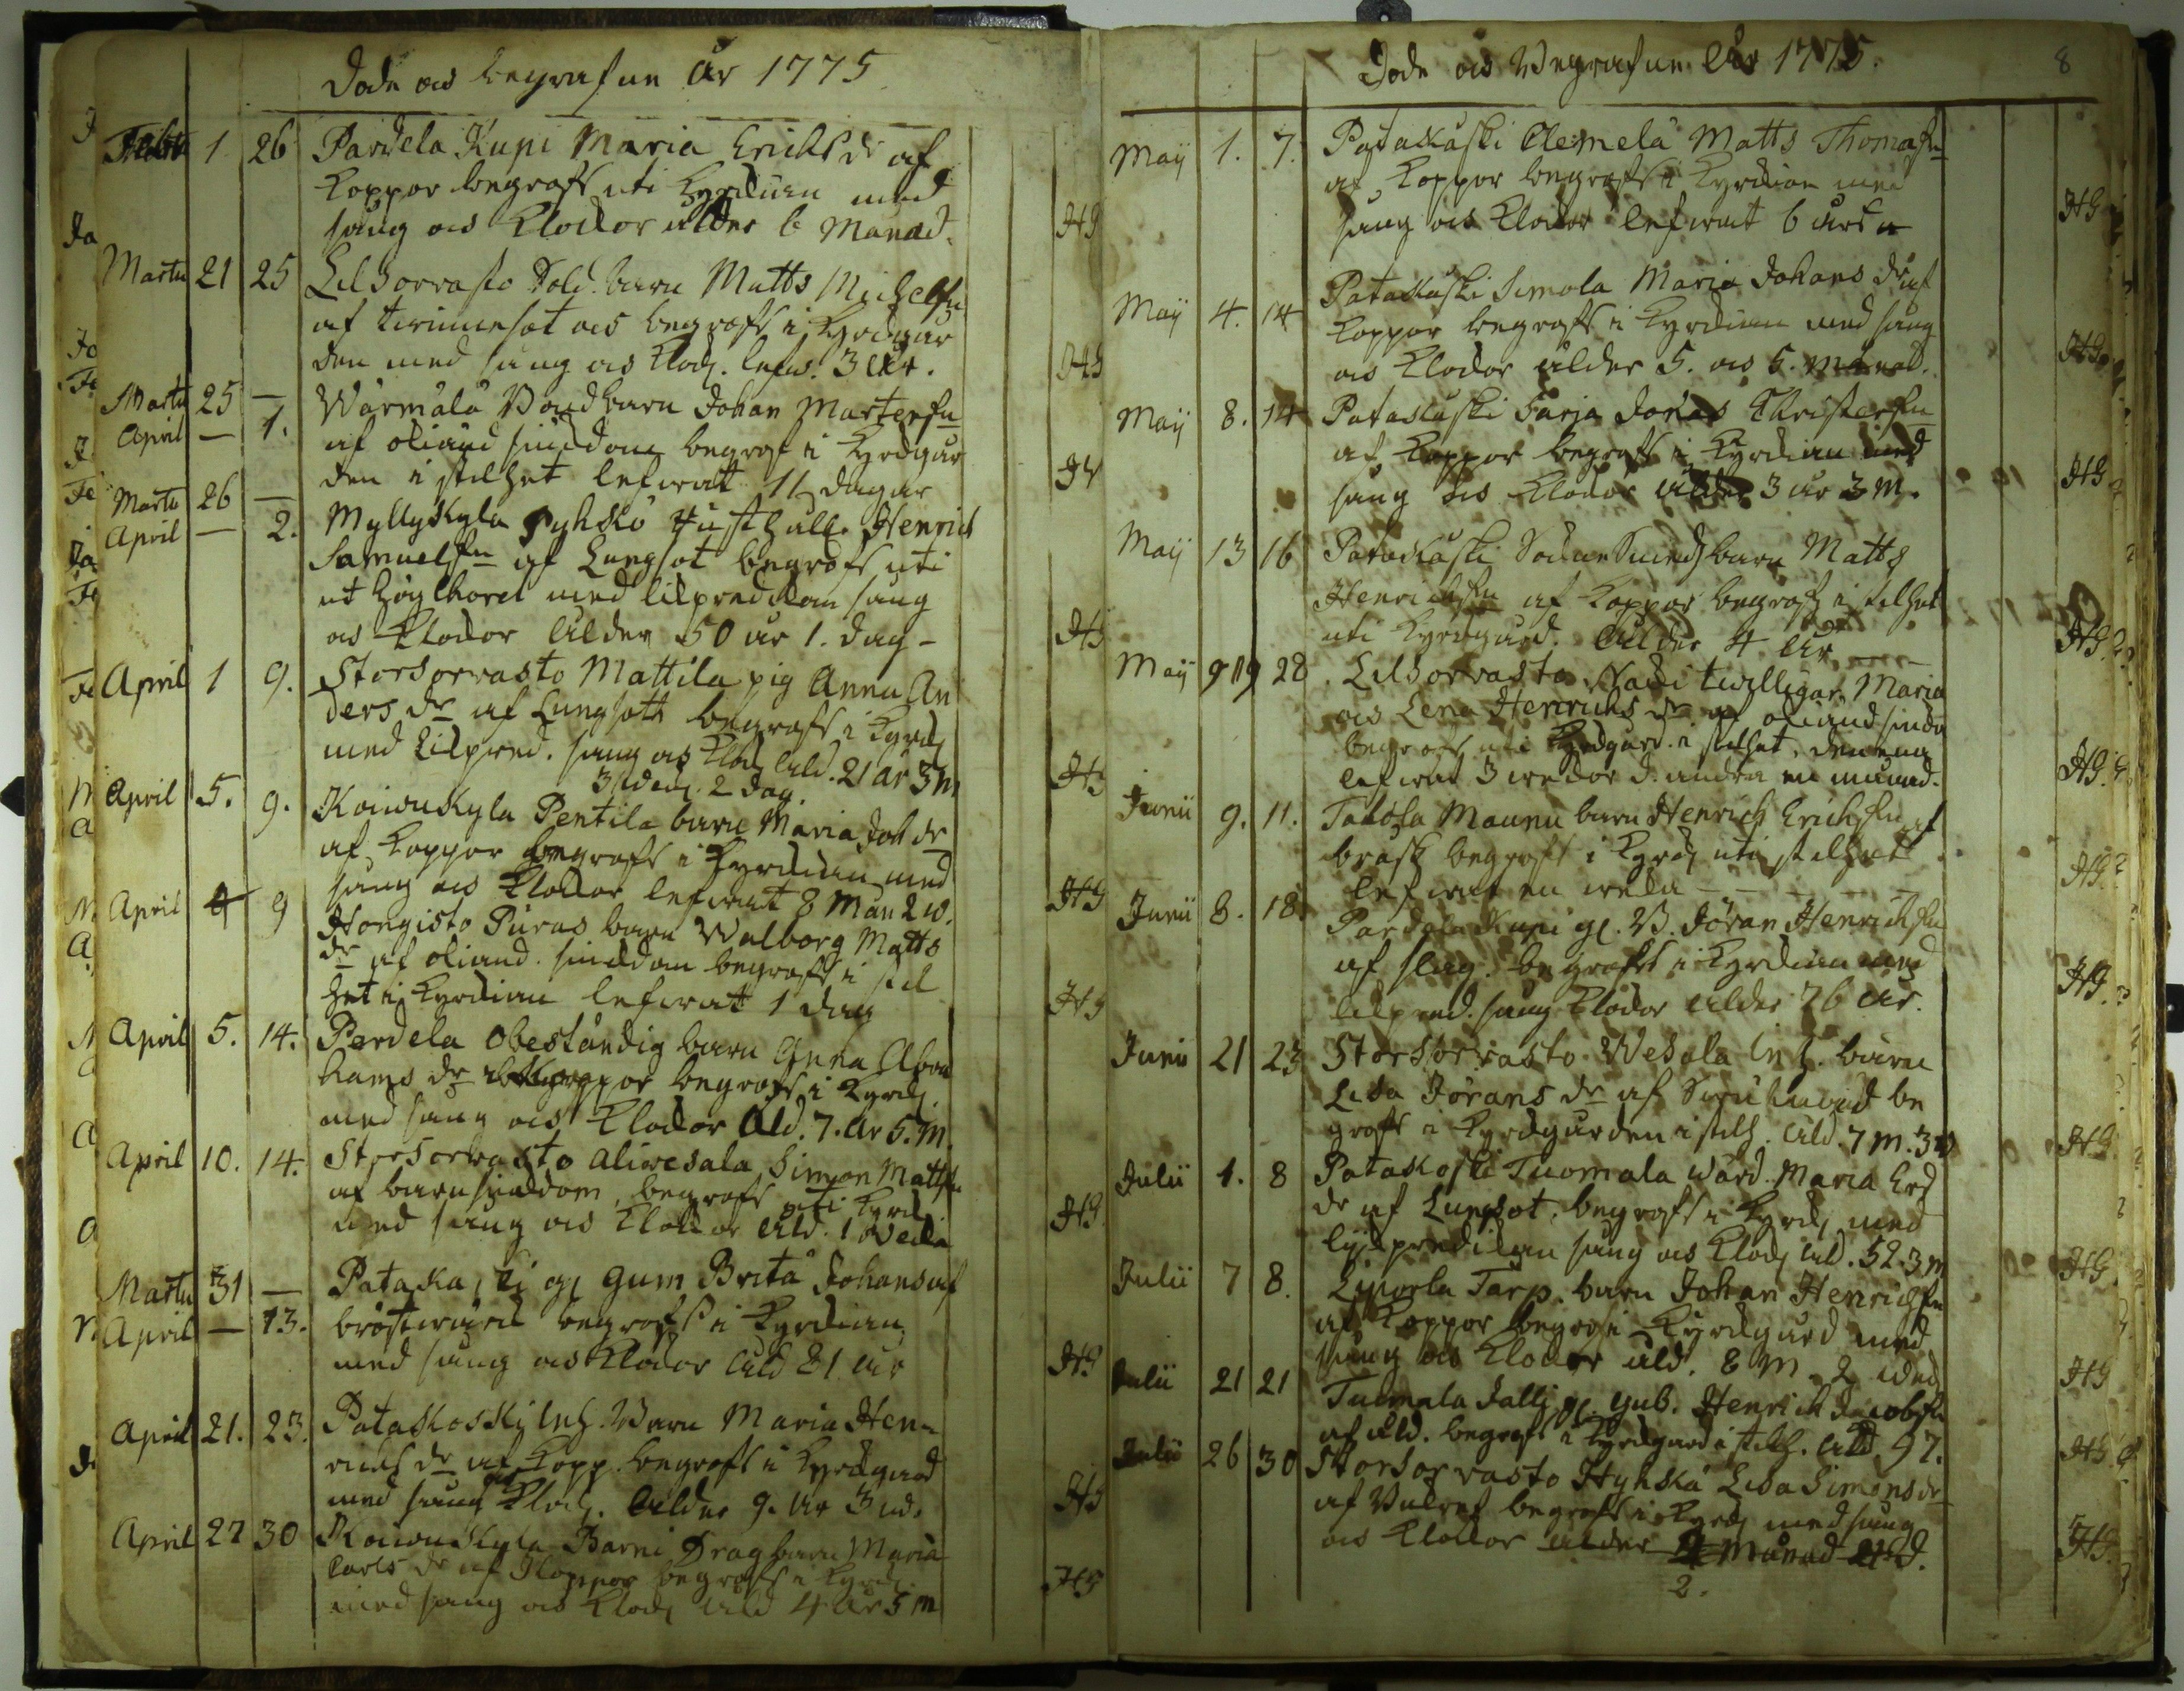 Döde ock begrafne År 1775
Febru 1 26 Pardela Kupi Maria Erichs dr af
Koppor begrafs uti Kyrckian med
sång och Klockor ålder 6 Månad.
HG
Martii 21 25 Lilsorvasto Sold. barn Matts Michelsn
af begrafs i Kyrckgår
den med sång och Klock. lefw. 3 År.
HG
Martii 25 — Warmala Bond barn Johan Mårtensn
April — 1. af okiänd siuckdom begrof i Kyrckgår
den i stilhet lefwat 11 dagar
HG
Martii 26 — Myllykylä Pyhskö Husthåll. Henrich
April — 2. Samuelsn af Lungsot begrofs uti
med likpredikan sång
och Klockor Ålder 50 år 1. dag -
HG
April 1 9. Storsorvasto Mattila pig Anna An
ders dr af Lungsott begrafs i Kyrck
med Likpred. sång och Klock Åld. 21 år 3 m
2 dag.
HG
April 5. 9. Koivukyla Pentila barn Maria Joh dr
af Koppor begrafs i Kyrckian med
sång och Klockor lefwat 8 Mån 2 w.
HG
April 9 9 Hongisto Puras barn Walborg Matts
dr af okiänd. siuckdom begrafs i stil
het i Kyrckian lefwat 1 dag
HG
April 5. 14. Perdela Obeständig barn Anna Abra
hams dr Koppor begrafs i Kyrck
med sång och Klockor Åld. 7. År 5. M.
April 10. 14. Storsorvasto Aliwesala Simon Mattsn
af barnsiuckdom, begrafs uti Kyrck
med sång och Klockor Åld. 1 wecka
HG
Martii 31 — Pataka gl gum Brita Johans af
April — 13. bröstwärck begrafs i Kyrckian
med sång och Klockor Åld 81 År
HG
April 21. 23. Pataskoski Inh. Barn Maria Hen-
richs dr af Kopp. begrafs i Kyrckgård
med sång och Klock. Ålder 9. År 3 wd.
HG
April 27 30 Koivukyla Barni Drag barn Maria
Carls dr af Koppor begrafs i Kyrck
med sång och Klock Åld 4 År 5 m
HG
Döde och Begrafne År 1775.
8
Maij 1. 7. Pataskåski Clemelä Matts Thomasn
af Koppor begrafs i Kyrckian med
sång och Klockor lefwat 6 år
HG
Maij 4. 14 Pataskåski Simola Maria Johans dr af
Koppor begrafs i Kyrckian med sång
och Klockor ålder 5. och 5. Månad.
HG
Maij 8. 14 Pataskåski Sarja Jonas Christersn
af Koppor begrafs i Kyrckian med
sång och Klockor Ålder 3 år 3 M.
HG
Maij 13 16 Pataskåski Sockne Smeds barn Matts
Henrichsn af Koppor begrafs i stilhet
uti Kyrckgård. Ålder 4 År
HG
Maij 9 19 28 Lilsorvasto twillingar Maria
och Lena Henrichs dr af okiänd siuckd
begrafs uti Kyrckgård i stilhet, den ena
lefwat 3 weckor d. andra en månad.
HG
Junii 9. 11. Takola Maunu barn Henrich Erichsn af
bråsk begrafs i Kyrck uti stilhet
lefwat en wecka
HG
Junii 8. 18. Pardela Kupi gl. B. Jöran Henrichsn
af slag. begrafs i Kyrckian med
likpred. sång Klockor Ålder 76 År.
HG
Junii 21 23 Storsorvasto Wesala Inh. barn
Lisa Jörans dr af be
grafs i Kyrckgården i stilh. Åld. 7 M. 3 w
HG
Julii 1. 8 Pataskoski Tuomala wärd. Maria Er
dr af Lungsot. begrafs i Kyrck med
lijkpredikan sång och Klock Åld. 52. 3 m
HG
Julii 7 8. Liporla Tarp. barn Johan Henrichsn
af Koppor begr. i Kyrckgård med
sång och Klockor åld. 8 M. 2 wed
HG
Julii 21 21 Tuomala Jalli gl. gub. Henrich Jacobsn
af åld. begrafs i Kyrckgård i stilh. Åld. 97.
HG
Julii 26 30 Storsorvasto Hyhskä Lisa Simons dr
af begrafs i Kyrck med sång
och Klockor ålder Månad
2.
HG